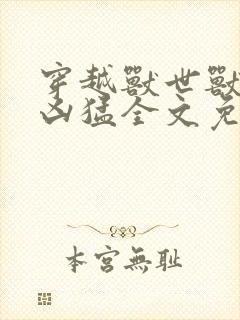 穿越獸世獸
凶猛全文免
本宮無耻